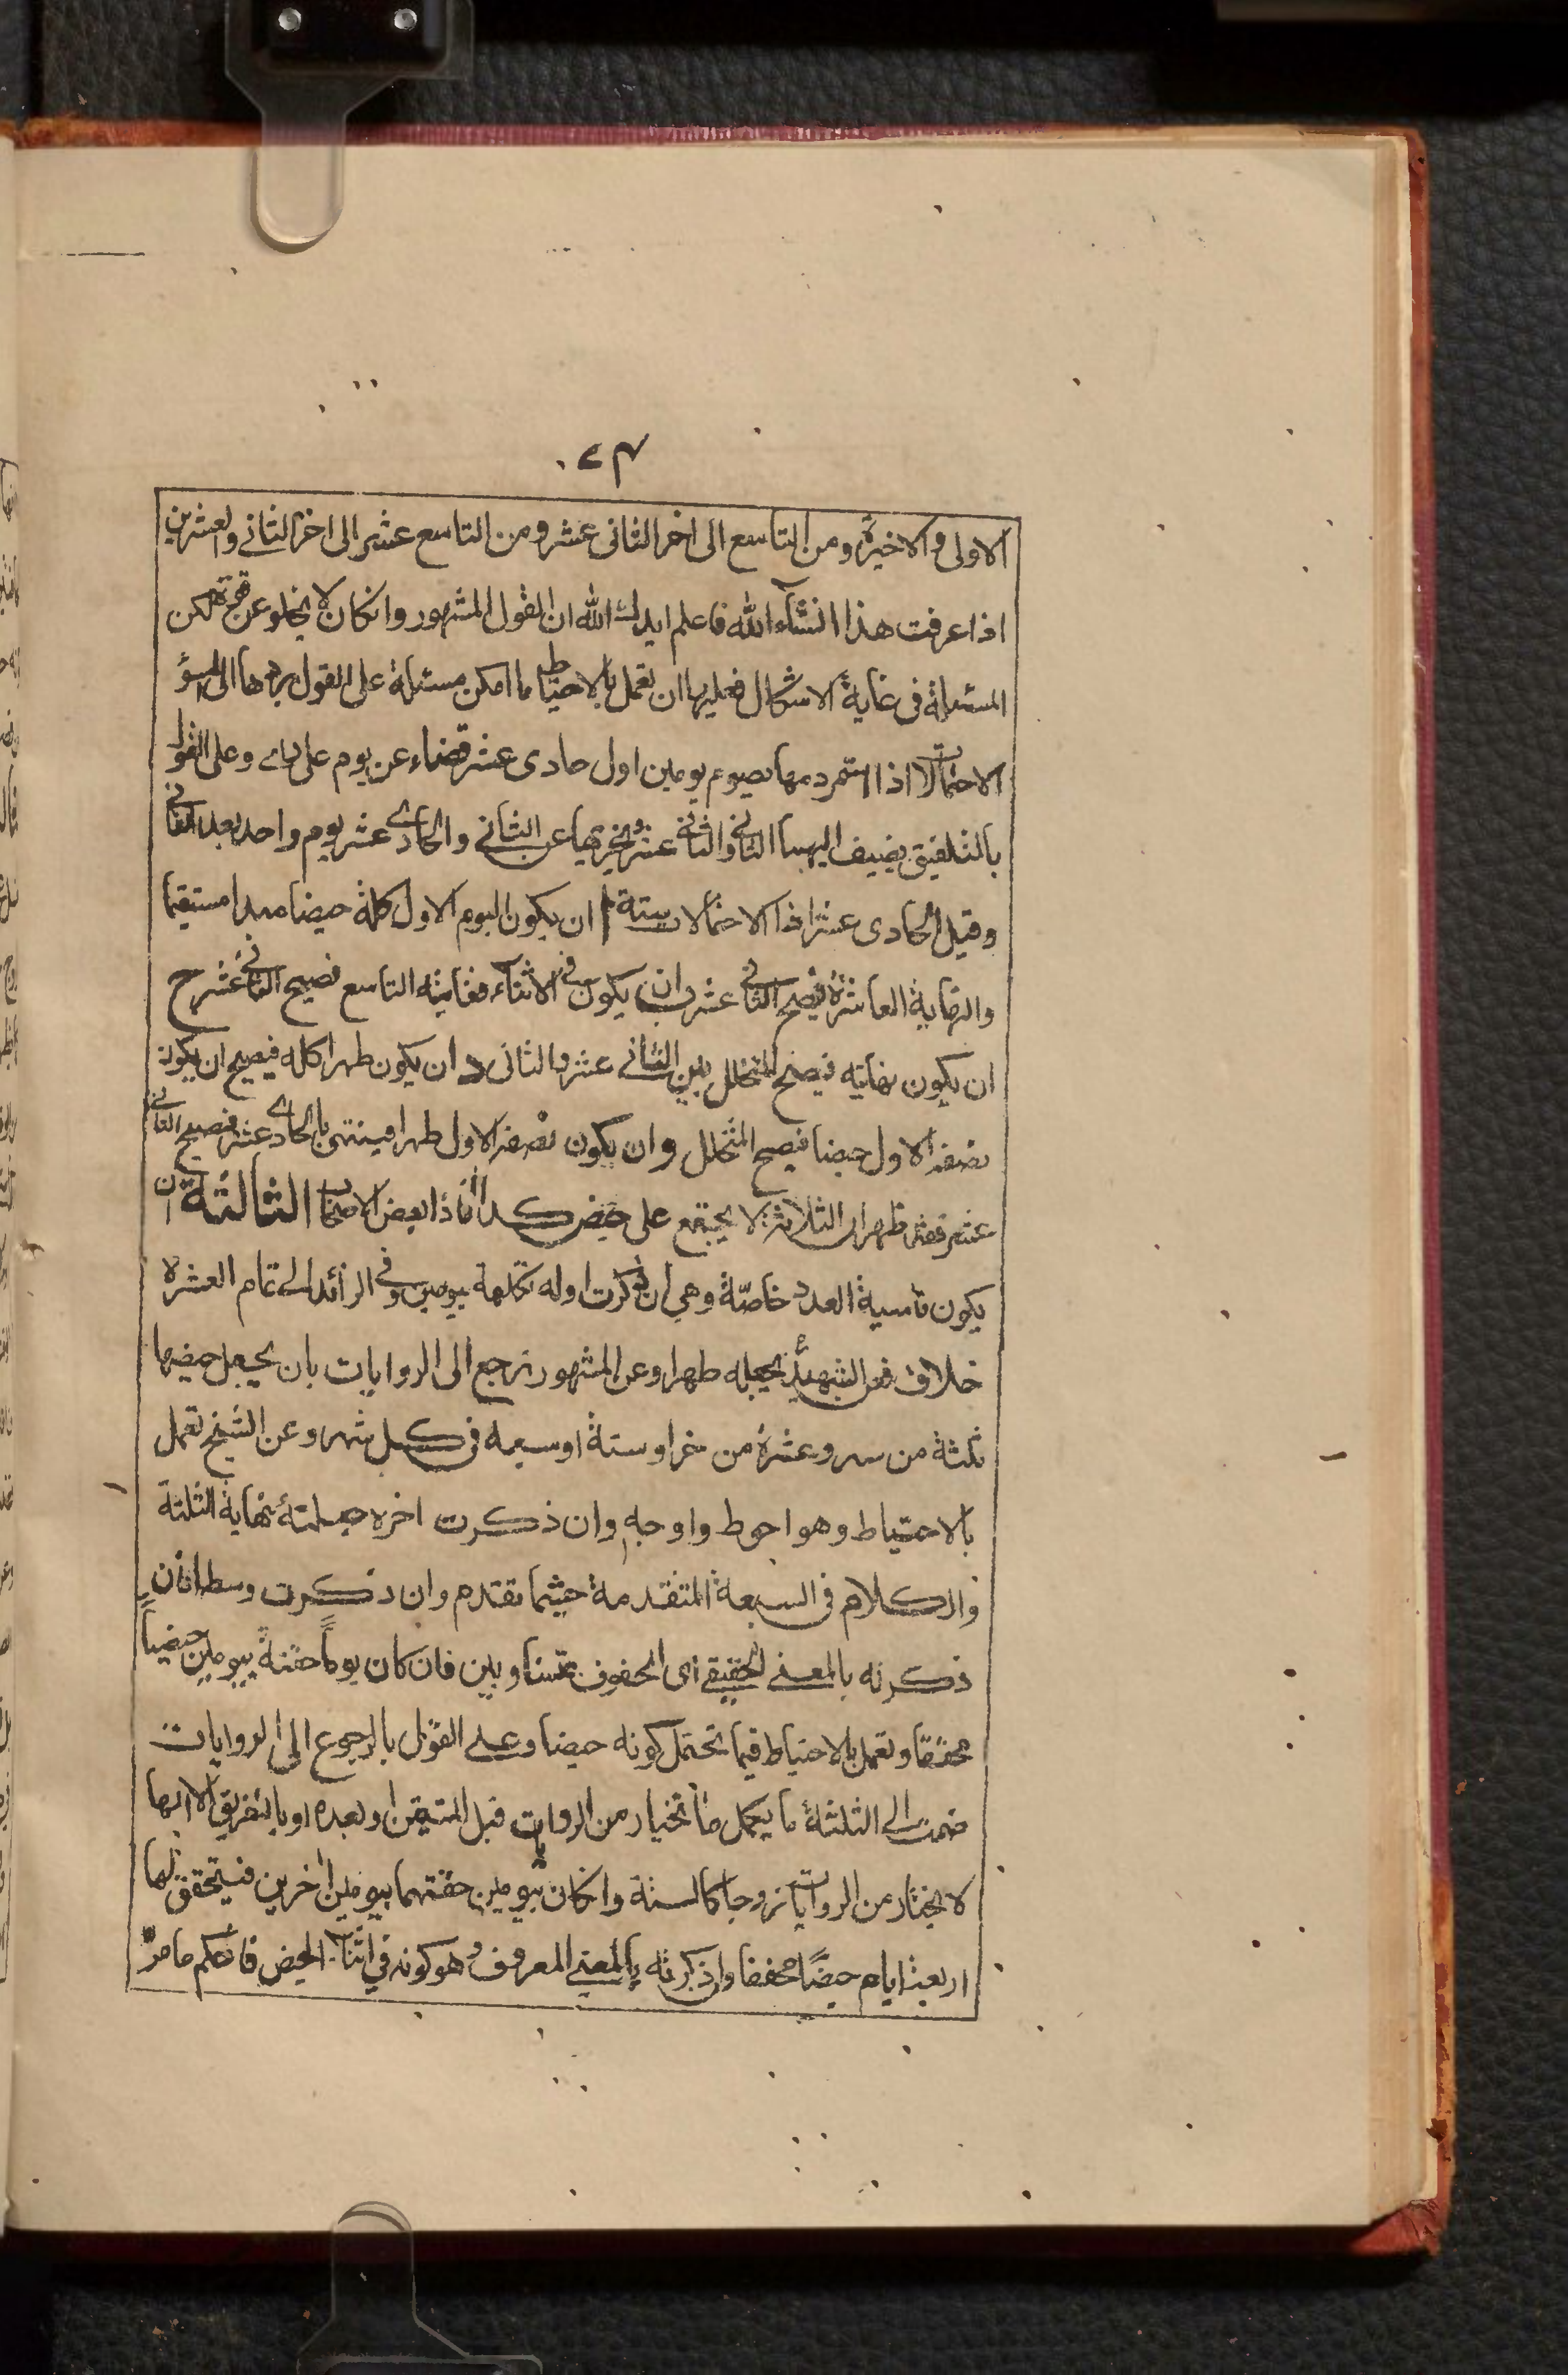 ٢٣
الاولى والاخيرة ومن التاسع الى اخر الثانى عشر ومن التاسع عشر الى اخر الثاني والعشرين
اذا عرفت هذا انشآء الله فاعلم ايدك الله ان القول المشهور وانكان لا يخلو عن قوة لكن
المسئلة فى غاية الاشكال فعليها ان تعمل بالاحتياط ما امكن مسئلة على القول بردها الى اسوء
الاحتمالات اذا استمر دمها تصوم يومين اول حادى عشر قضاء عن يوم على وعلى القول
بالتلفيق يضيف اليهما الثاني والثاني عشر عن الثاني والحادي عشر يوم واحد بعد الثاني
وقيل الحادى عشر اذا الاحتمالات ستة ا ان يكون اليوم الاول كله حيضا مبدا مستقيما
والنهاية العاشرة فيصح الثاني عشر ب ان يكون في الاثنآء فغايته التاسع فيصح الثاني عشر ح
ان يكون نهايته فيصح المتخلل بين الثاني عشر والثانى د ان يكون طهرا كله فيصح ان يكون
نصفه الاول حيضا فيصح المتخلل و ان يكون نصفه الاول طهرا فينتهى بالحادي عشر فيصح الثاني
عشر فقد ظهر ان الثلاثة لا يجتمع على حيض كذا افاد بعض الاصحاب الثالثة ان
يكون ناسية العدد خاصّة وهي ان ذكرت اوله تكلمه بيومين وفي الزائد الى تمام العشرة
خلاف فعن الشهيد يجعله طهرا وعن المشهور ترجع الى الروايات بان يجعل حيضها
ثلثة من شهر وعشرة من اخر او ستة او سبعة فى كل شهر وعن الشيخ تعمل
بالاحتياط وهو احوط واوجه وان ذكرت اخره جعلته نهاية الثلثة
والكلام فى السبعة المتقدمة حيثما تقدم وان ذكرت وسطه فان
ذكرته بالمعنى الحقيقي اى المحفوف بمتساويين فان كان يوماً حفته بيومين حيضاً
محققا وتعمل بالاحتياط فيما تحتمل كونه حيضا وعلى القول بالرجوع الى الروايات
ضمت الى الثلثة ما يكمل ما تختار من الروايات قبل المتيقن او بعده او بالتفريق الا انها
لا تختار من الروايات زوجا كالستة وانكان يومين حفتهما بيومين اخرين فيتحقق لها
اربعة ايام حيضًا محققا وان ذكرته بالمعنى المعروف وهو كونه في اثناء الحيض فالحكم ما مرّ